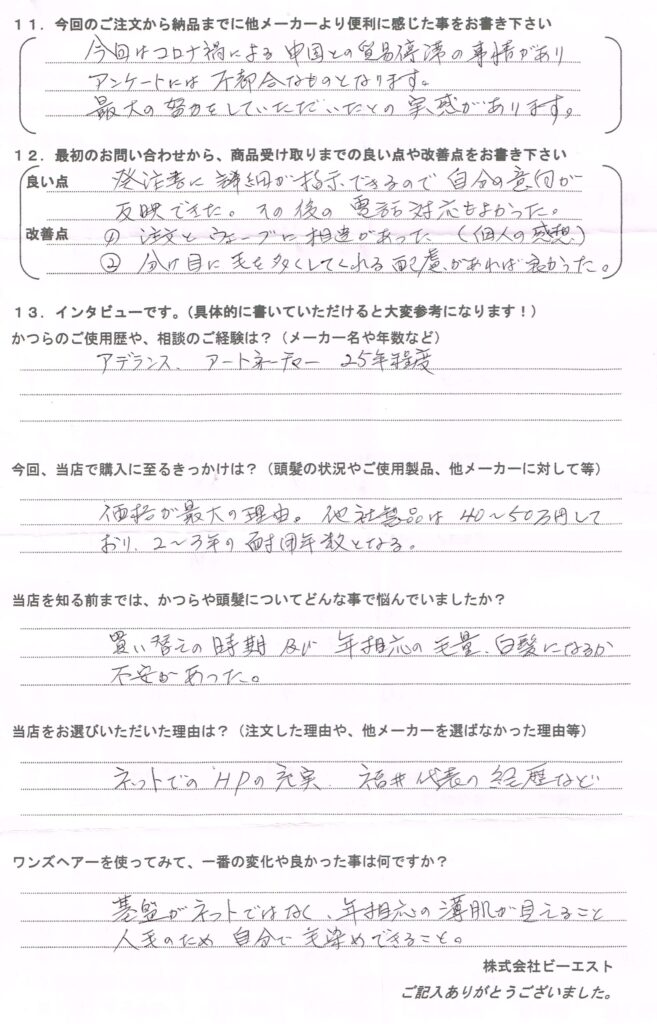 11．今回のご注文から納品までに他メーカーより便利に感じた事をお書き下さい
今回はコロナ禍による中国との貿易停滞の事情があり
アンケートには不都合なものとなります。
最大の努力をしていただいたとの実感があります。
12．最初のお問い合わせから、商品受け取りまでの良い点や改善点をお書き下さい
良い点 発注書に詳細が指示できるので自分の意向が
反映できた。その後の電話対応もよかった。
改善点 ① 注文とウェーブに相違があった（個人の感想）
② 分け目に毛を多くしてくれる配慮があれば良かった。
13．インタビューです。（具体的に書いていただけると大変参考になります！）
かつらのご使用歴や、相談のご経験は？（メーカー名や年数など）
アデランス、アートネーチャー 25年程度
今回、当店で購入に至るきっかけは？（頭髪の状況やご使用製品、他メーカーに対して等）
価格が最大の理由。他社製品は40～50万円して
おり、2～3年の耐用年数となる。
当店を知る前までは、かつらや頭髪についてどんな事で悩んでいましたか？
買い替えの時期及び年相応の毛量、白髪になるか
不安があった。
当店をお選びいただいた理由は？（注文した理由や、他メーカーを選ばなかった理由等）
ネットでのHPの充実、福井代表の経歴など
ワンズヘアーを使ってみて、一番の変化や良かった事は何ですか？
基盤がネットではなく、年相応の薄肌が見えること
人毛のため自分で毛染めできること。
株式会社ビーエスト
ご記入ありがとうございました。